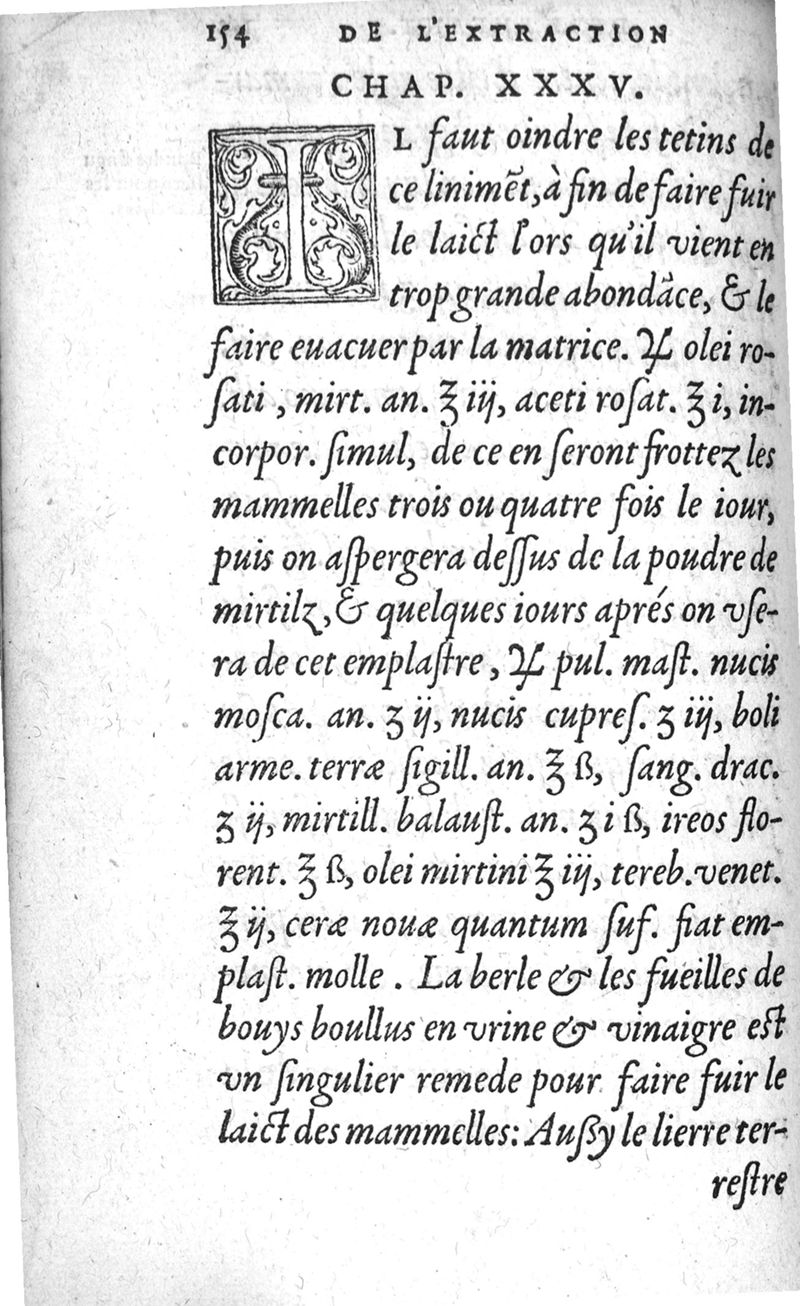 154 DE L'EXTRACTION
CHAP. XXXV.
IL faut oindre les tetins de
ce linimẽt, à fin de faire fuir
le laict l'ors qu'il vient en
trop grande abondãce, & le
faire euacuer par la matrice. ♃ olei ro-
ſati, mirt. an. ℥ iij, aceti roſat. ℥ i, in-
corpor. ſimul, de ce en ſeront frottez les
mammelles trois ou quatre fois le iour,
puis on aſpergera deſſus de la poudre de
mirtilz, & quelques iours aprés on vſe-
ra de cet emplaſtre, ♃ pul. maſt. nucis
moſca. an. ʒ ij, nucis cupreſ. ʒ iij, boli
arme. terræ ſigill. an. ℥ ß, ſang. drac.
ʒ ij, mirtill. balauſt. an. ʒ i ß, ireos flo-
rent. ℥ ß, olei mirtini ℥ iij, tereb. venet.
℥ ij, ceræ nouæ quantum ſuf. fiat em-
plaſt. molle. La berle & les fueilles de
bouys boullus en vrine & vinaigre est
vn ſingulier remede pour faire fuir le
laict des mammelles: Außy le lierre ter-
reſtre